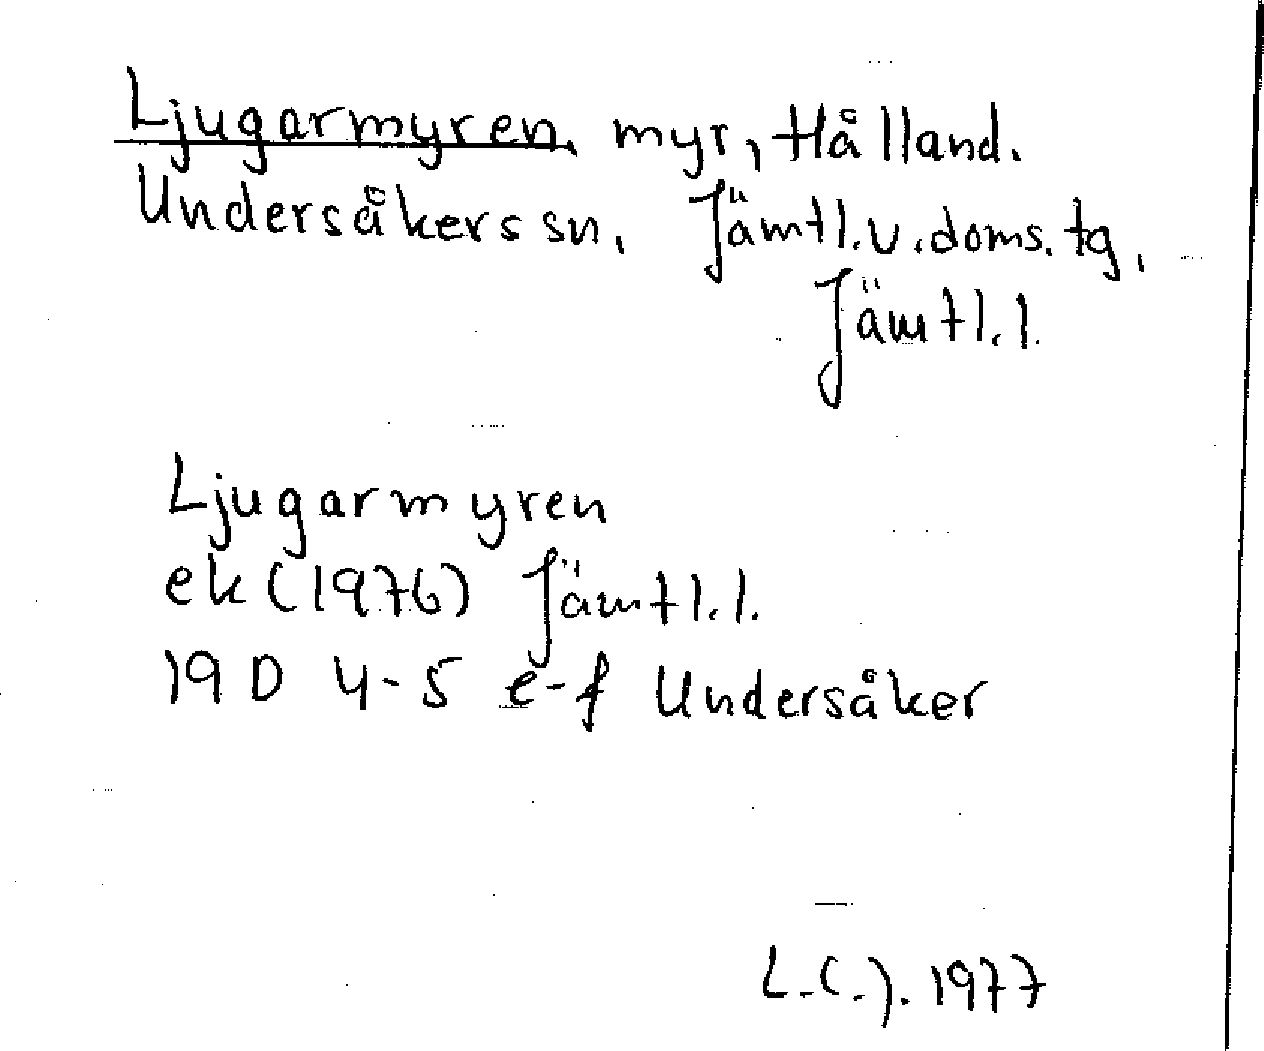 Ljugarmyren, myr, Hålland.
Undersåkers sn, Jämtl.v.doms.tg,
Jämtl.l.
Ljugarmyren
ek (1976) Jämtl.l.
19 D 4-5 e-f Undersåker
L.C.J. 1977